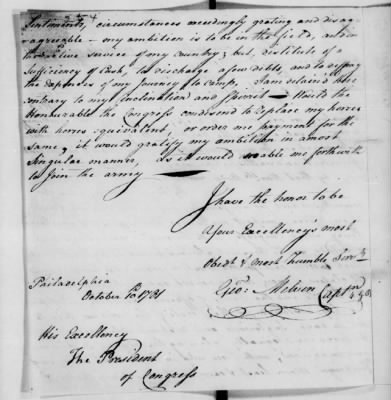 Sentiments, circumstances exceedingly grating and disag-
-agreeable — my ambition is to be in the field, actu
the active service of my Country; but, destitute of a
Sufficiency of Cash, to discharge a few debts, and to support
the Expences of my Journey to camp, I am detained here
contrary to my Inclination and Spirit — Would the
Honourable the Congress condescend to replace my horses
with horses equivalent, or order me payment for the
same, it would gratify my ambition in a most
Singular manner, as it would enable me forthwith
to Join the army —
I have the honor to be
Your Excellency's most
Obedt & most humble Servt
Geo: Melvin Captn
Philadelphia
October 1781
His Excellency
The President
of Congress